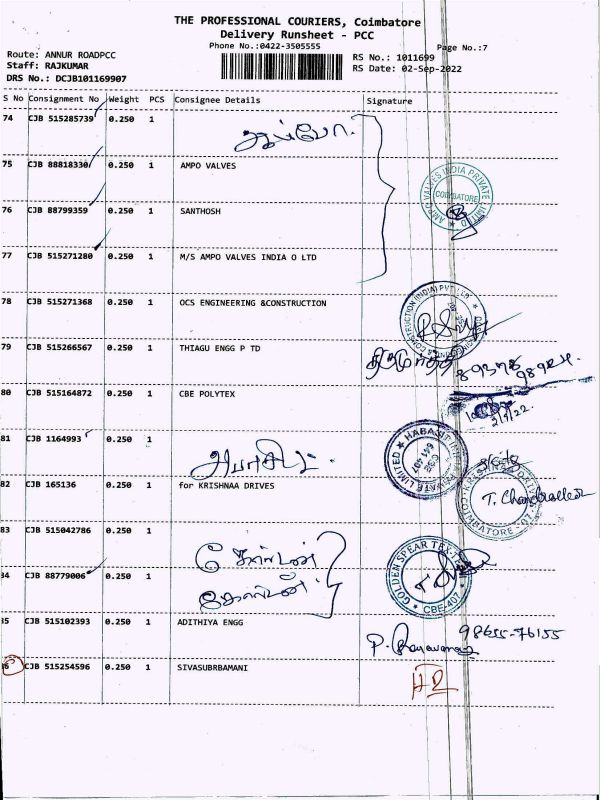 THE PROFESSIONAL COURIERS, Coimbatore
Delivery Runsheet - PCC
Phone No.:0422-3505555
Page No.:7
Route: ANNUR ROADPCC
RS No.: 1011699
Staff: RAJKUMAR
RS Date: 02-Sep-2022
DRS No.: DCJB101169907
S No Consignment No Weight PCS Consignee Details Signature
74 CJB 515285739 0.250 1
75 CJB 88818330 0.250 1 AMPO VALVES
AMPO VALVES INDIA PRIVATE LIMITED
COIMBATORE
76 CJB 88799359 0.250 1 SANTHOSH
77 CJB 515271280 0.250 1 M/S AMPO VALVES INDIA O LTD
78 CJB 515271368 0.250 1 OCS ENGINEERING &CONSTRUCTION
79 CJB 515266567 0.250 1 THIAGU ENGG P TD
80 CJB 515164872 0.250 1 CBE POLYTEX
2/9/22.
81 CJB 1164993 0.250 1
82 CJB 165136 0.250 1 for KRISHNAA DRIVES
COIMBATORE
83 CJB 515042786 0.250 1
கோல்டன்
GOLDEN SPEAR
CBE-407
34 CJB 88779006 0.250 1
கோல்டன்
35 CJB 515102393 0.250 1 ADITHIYA ENGG
98655-76155
6 CJB 515254596 0.250 1 SIVASUBRBAMANI